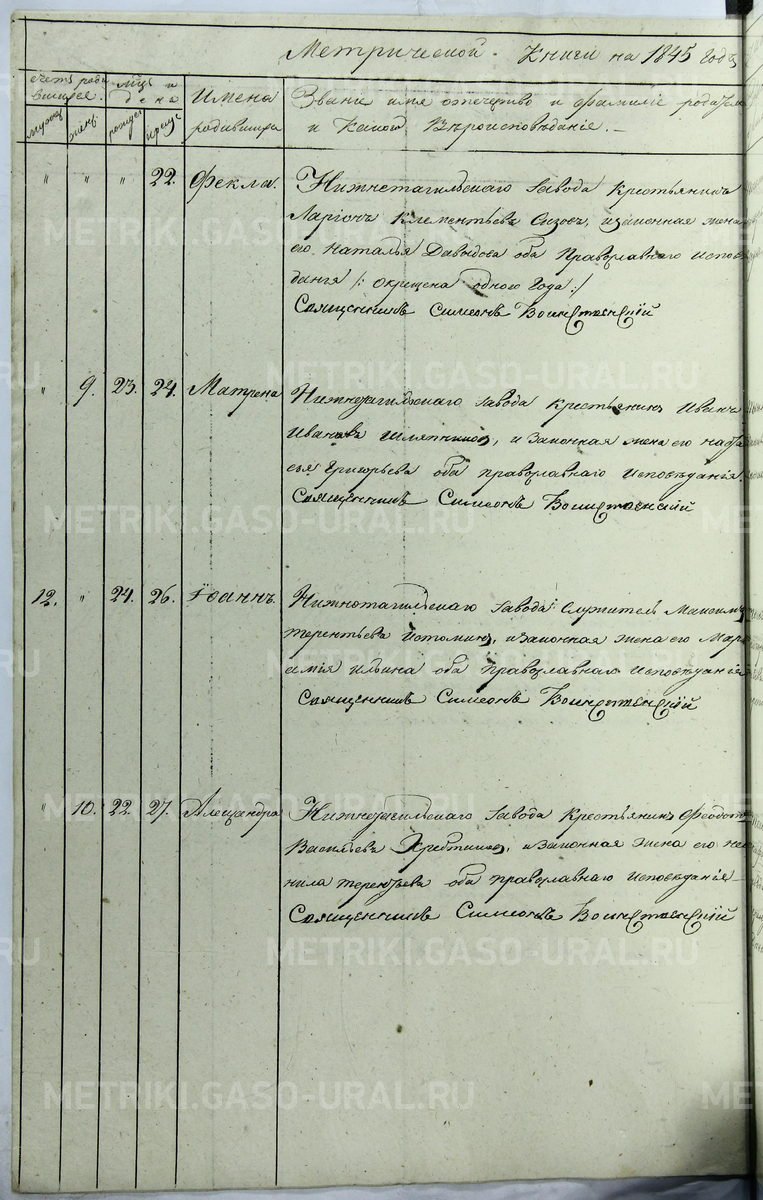 Метрической Книги на 1845 Годъ
счетъ роди
вшихся.
мѣсяцъ и
день
Имена
родившихся
Званіе имя отечество и фамиліе родителей
и какой Вѣроисповѣданіе.
мужеск
женск
рожден
крещен
" " " 22. Фекла.
Нижнетагильскаго завода Крестьянинъ
Ларіонъ Клементьевъ Сизовъ, изаконная жена
его Наталья Давыдова оба Православнаго Исповѣ
данія /: окрещена одного Года :/
Священникъ Симеонъ Воинственскій
" 9. 23. 24. Матрена
Нижнетагильскаго завода Крестьянинъ Иванъ
Ивановъ Шляпниковъ, и Законная жена его Наста
сья Григорьева оба православнаго Исповѣданія
Священникъ Симеонъ Воинственскій
12. " 24. 26. Іоаннъ.
Нижнетагильскаго завода Служитель Максимъ
терентьевъ Истоминъ, изаконная жена его Мар
емія Ильина оба Православнаго Исповѣданія
Священникъ Симеонъ Воинственскій
" 10. 22. 27. Александра
Нижнетагильскаго завода Крестьянинъ Феодотъ
Васильевъ Хребтиковъ, и Законная жена его Нео
нила терентьева оба православнаго Исповѣданія
Священникъ Симеонъ Воинственскій
METRIKI.GASO-URAL.RU